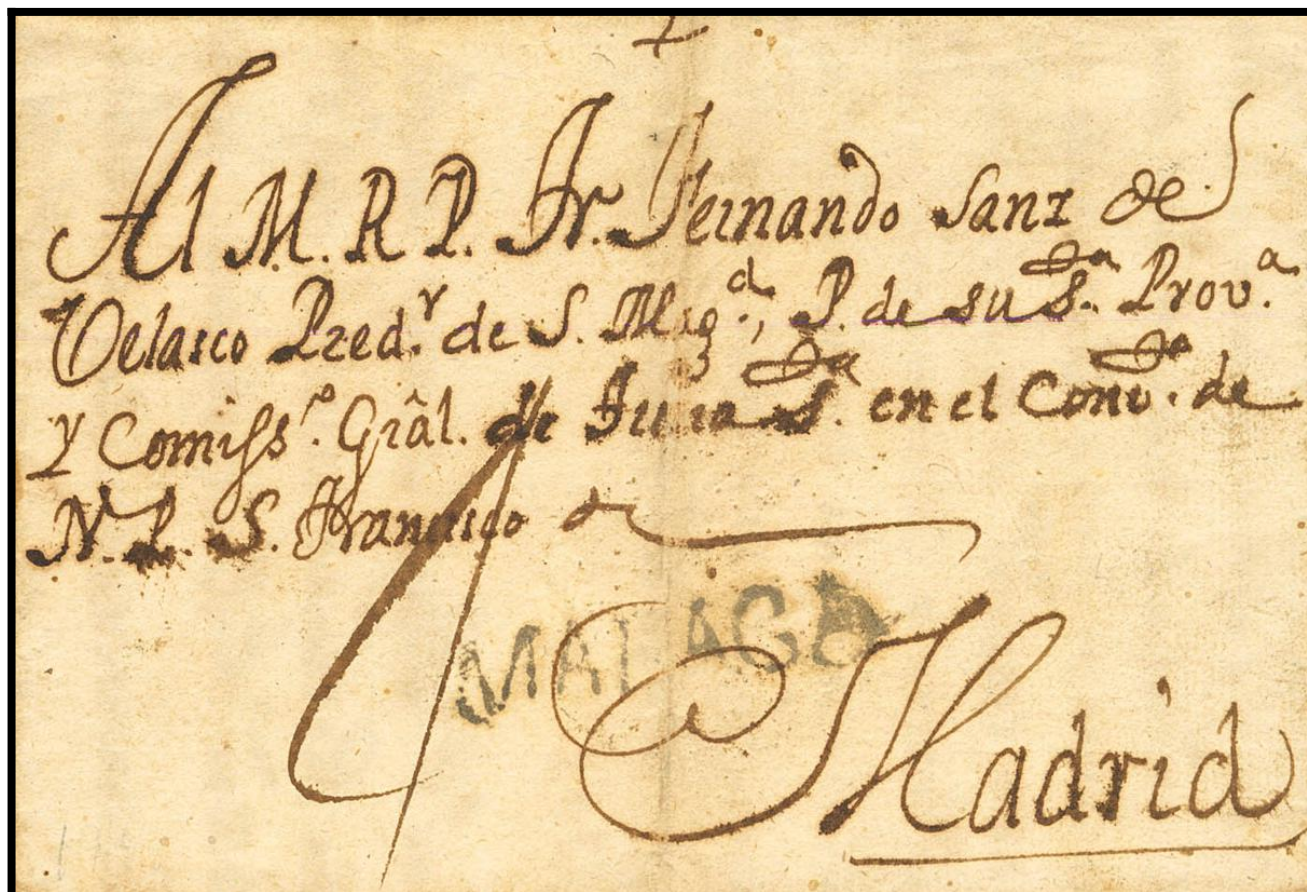 Al M. R. P. Fr. Fernando Sanz de
Velasco Pred.r de S. Mag.d, P. de su S.ta Prov.a
Y Comiss.o Grâl. de S.ta en el Conv.to de
N. P. S. Francisco de
MALAGA
Madrid